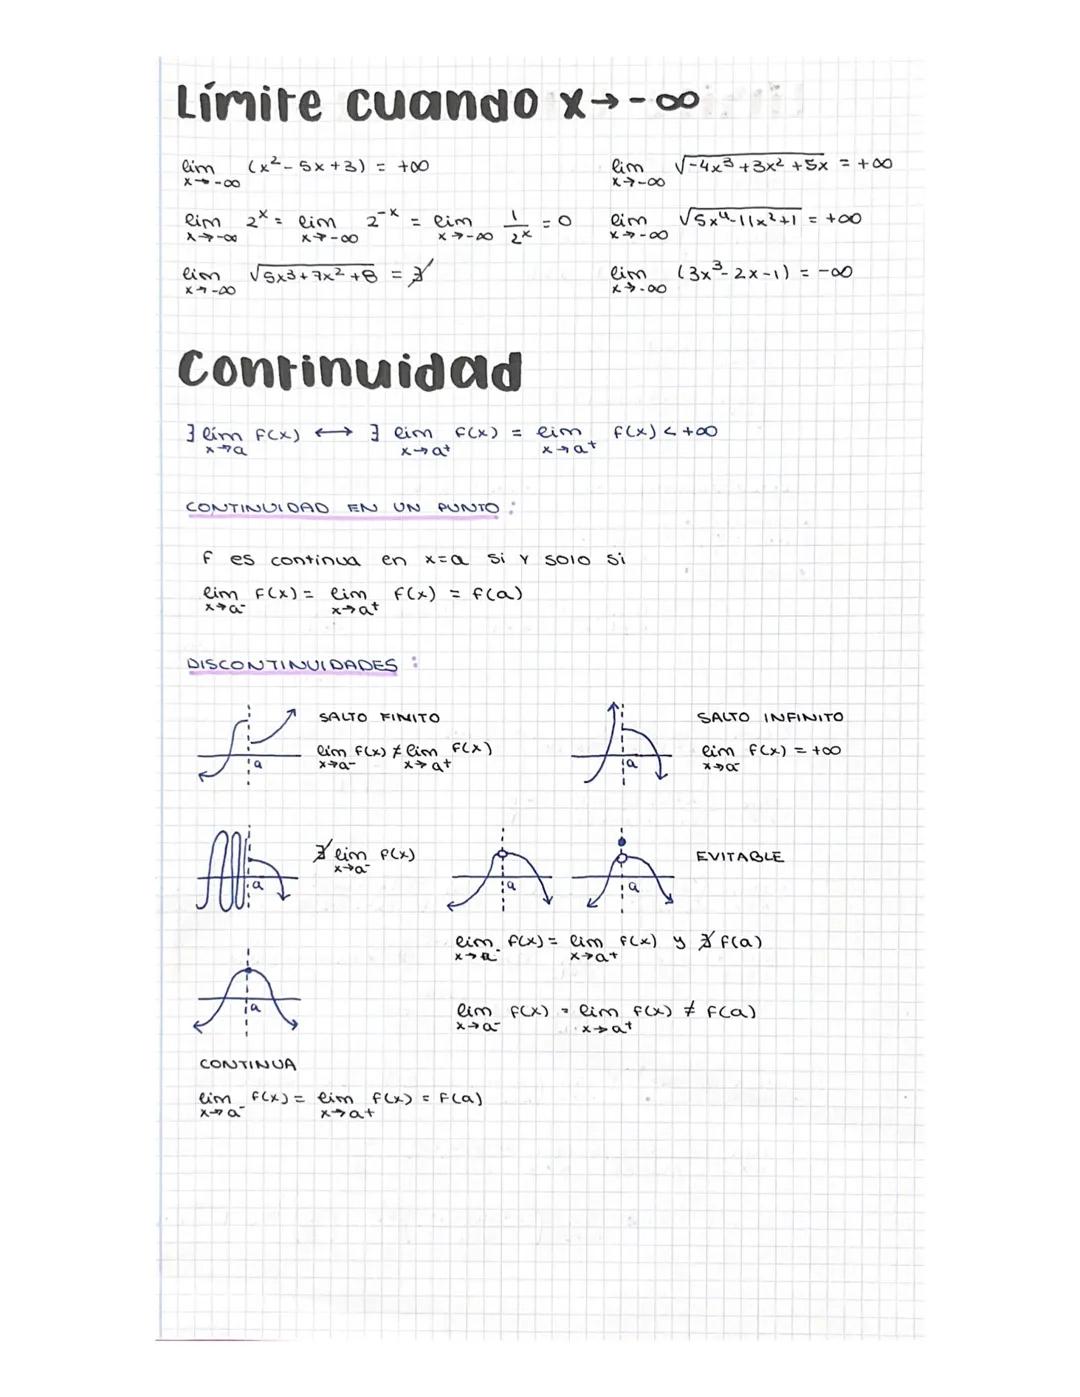 Límite cuando x→-∞
lim x→-∞ (x²-5x+3) = +∞
lim x→-∞ √-4x³+3x²+5x = +∞
lim x→-∞ 2ˣ = lim x→-∞ 2⁻ˣ = lim x→-∞ 1/2ˣ = 0
lim x→-∞ √5x⁴-11x²+1 = +∞
lim x→-∞ √5x³+7x²+8 = ∄
lim x→-∞ (3x³-2x-1) = -∞
Continuidad
∃ lím x→a f(x) ⟷ ∃ lim x→a⁺ f(x) = lim x→a⁺ f(x) < +∞
CONTINUIDAD EN UN PUNTO:
f es continua en x=a si y solo si
lim x→a⁻ f(x) = lim x→a⁺ f(x) = f(a)
DISCONTINUIDADES:
SALTO FINITO
lim x→a⁻ f(x) ≠ lim x→a⁺ f(x)
a
SALTO INFINITO
lim x→a⁻ f(x) = +∞
a
∄ lim x→a⁻ f(x)
a
EVITABLE
a
a
lim x→a⁻ f(x) = lim x→a⁺ f(x) y ∄ f(a)
lim x→a⁻ f(x) = lim x→a⁺ f(x) ≠ f(a)
a
CONTINUA
lim x→a⁻ f(x) = lim x→a⁺ f(x) = f(a)